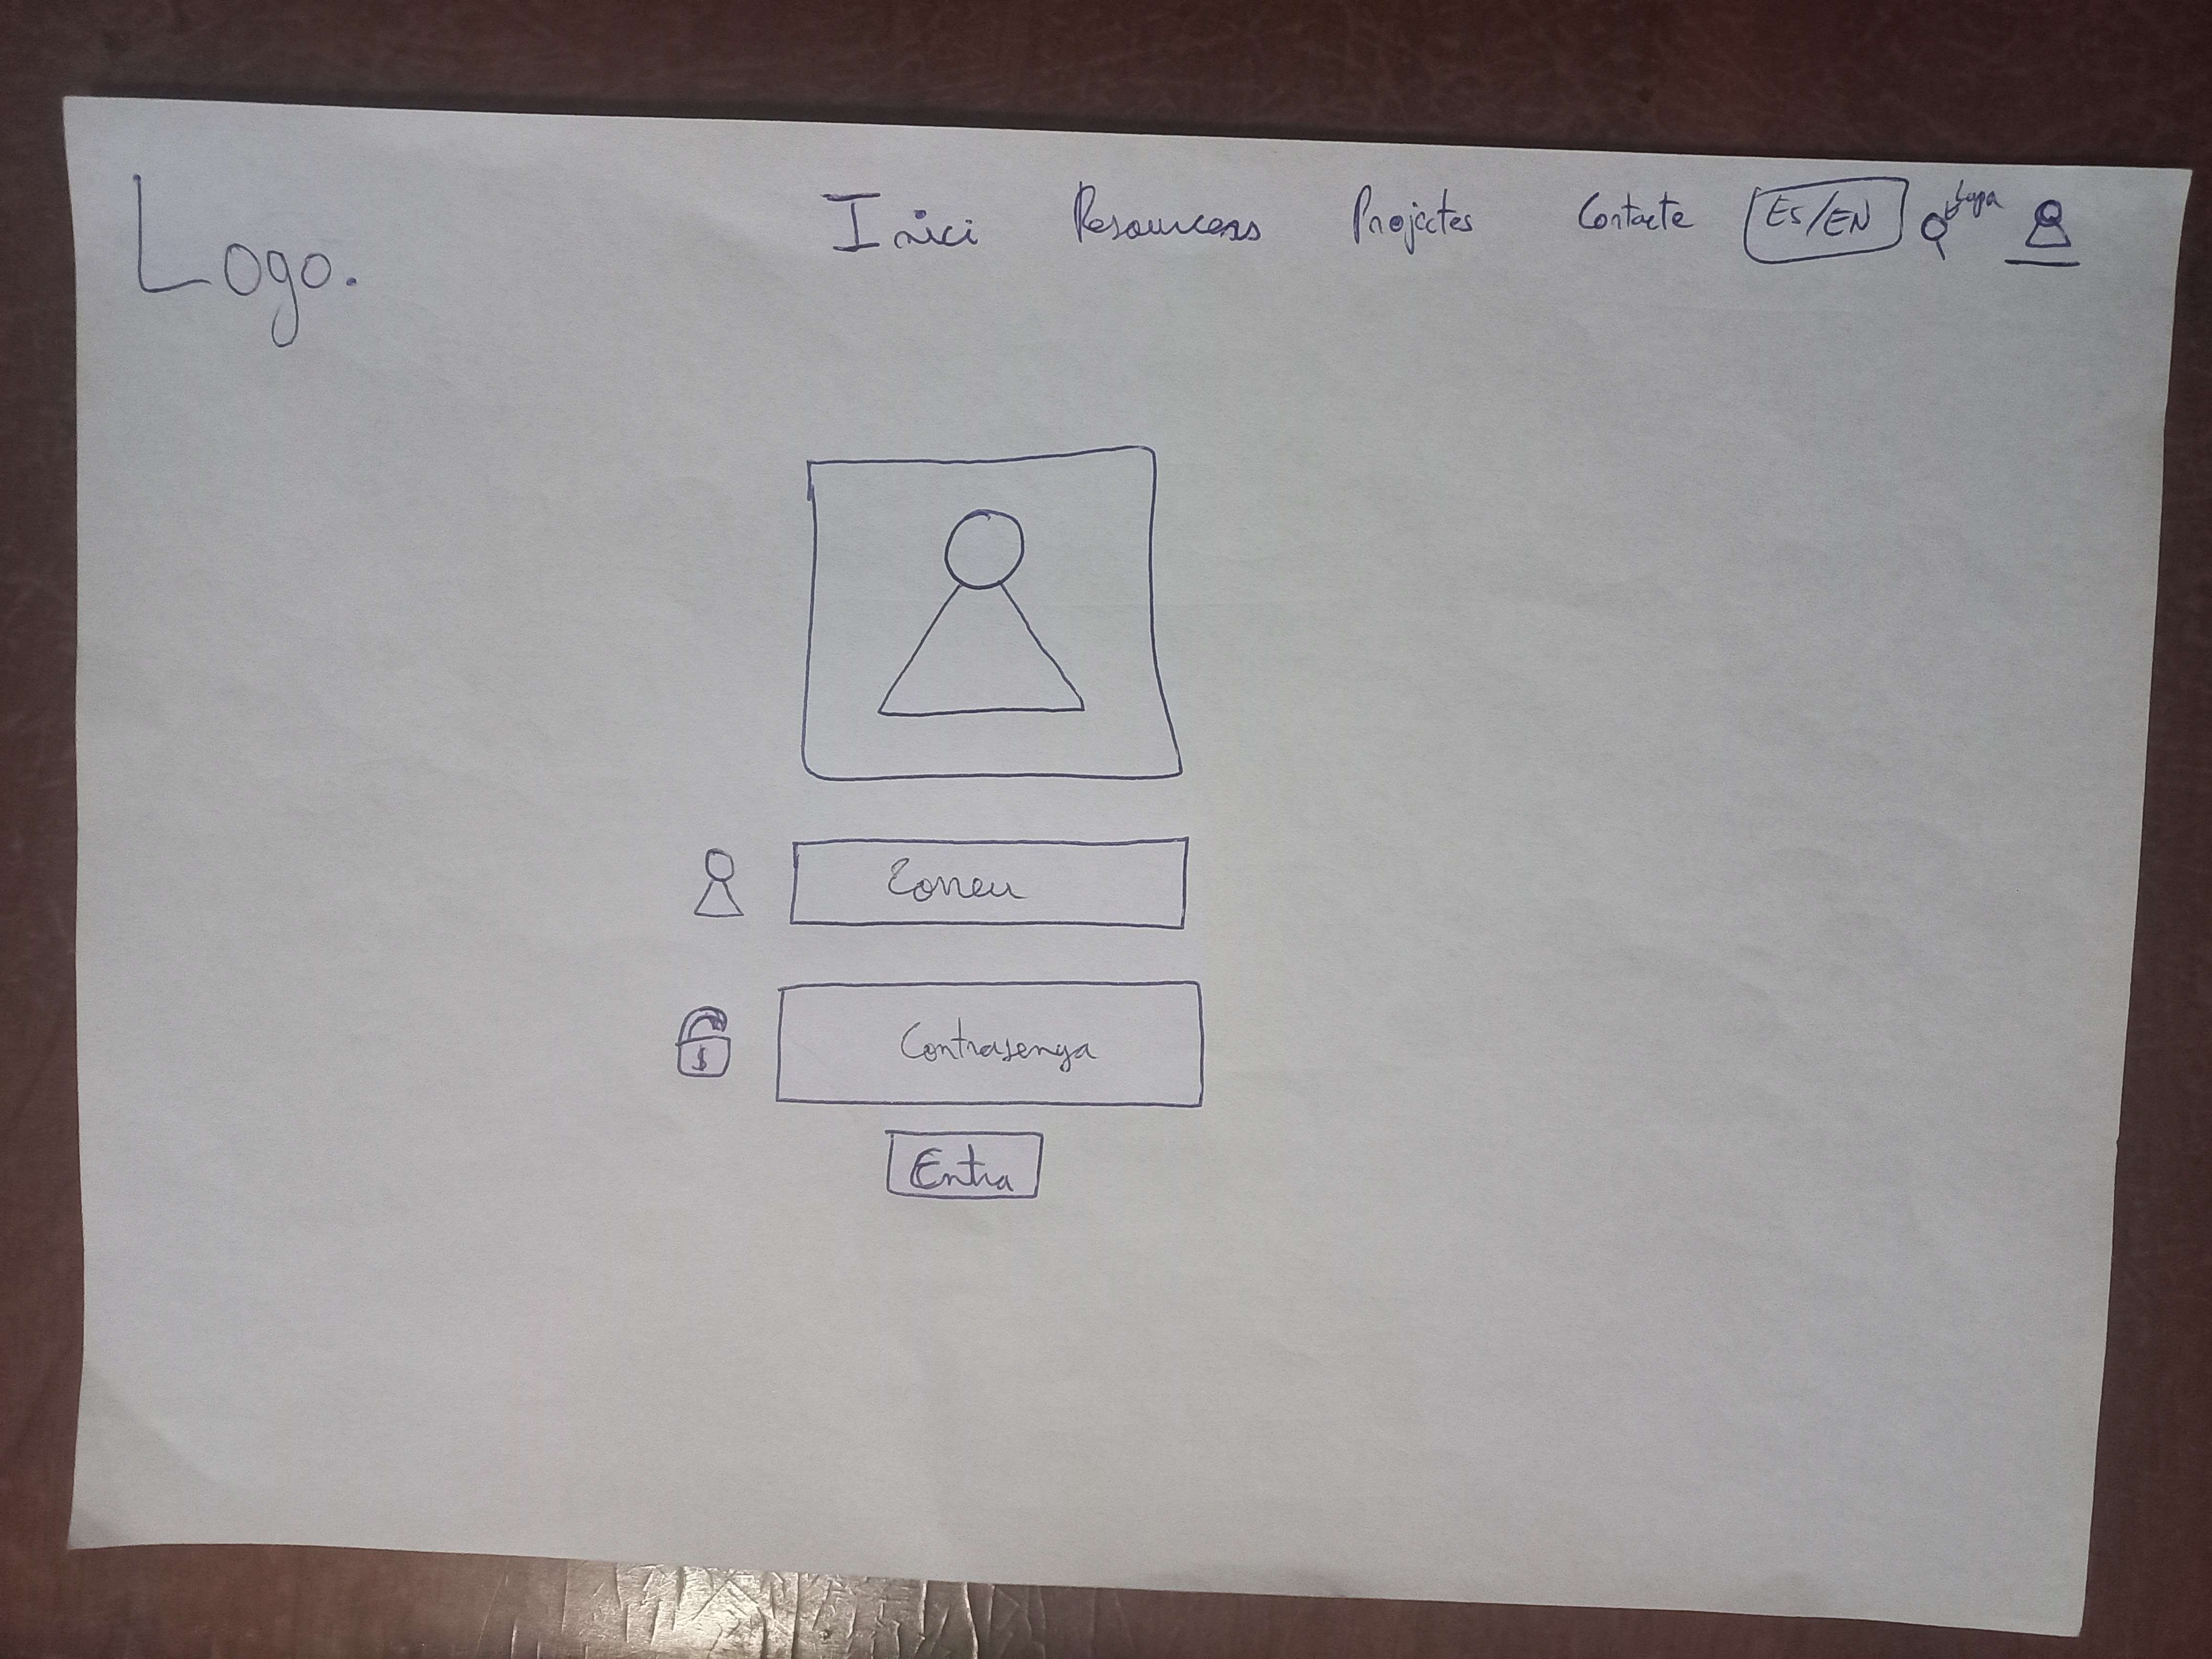 Logo.
Inici Resourcess Projectes Contacte ES/EN Lupa
Correu
Contrasenya
Entra